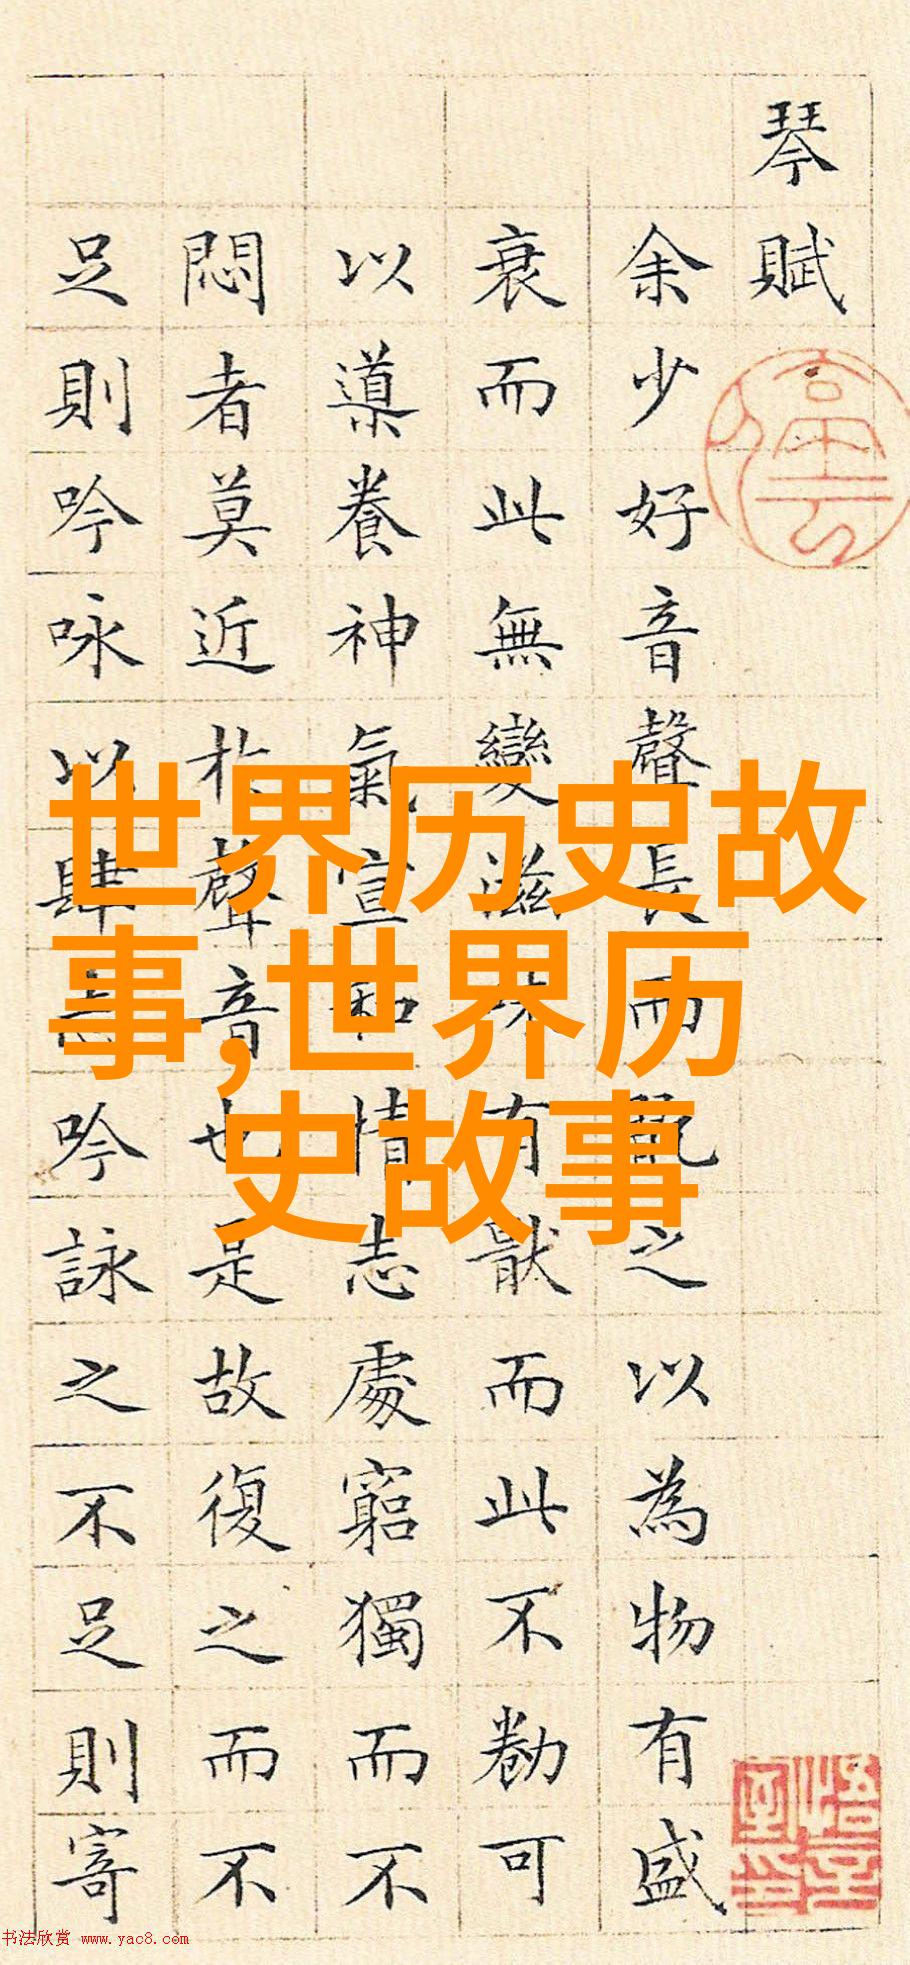 琴賦
余少好音聲長而翫之以為物有盛
衰而此無變滋味有猒而此不勌可
以導養神氣宣和情志處窮獨而不
悶者莫近於聲音也是故復之而不
足則吟咏以肆志吟詠之不足則寄
世界历史故
事,世界历
史故事
书法欣赏 www.yac8.com